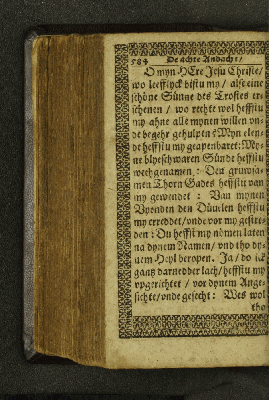 584 De achte Andacht /
O myn HEre Jesu Christe /
wo leefflyck bistu my / alse eine
schöne Sünne des Trostes er-
schenen / wo rechte wol heffstu
my ahne alle mynen willen vn-
de begehr gehulpen? Myn elen-
de heffstu my geapenbaret: My-
ne blyeschwaren Sünde heffstu
wechgenamen: Den gruwsa-
men Thorn Gades heffstu van
my gewendet: Van mynen
Vyenden den Düuelen heffstu
my erreddet / vnde vor my gestre-
den: Du heffst my nömen laten
na dynem Namen / vnd tho dy-
nem Heyl beropen. Ja / do ick
gantz darnedder lach / heffstu my
vpgerichtet / vor dynem Ange-
sichte / vnde gesecht: Wes wol
tho